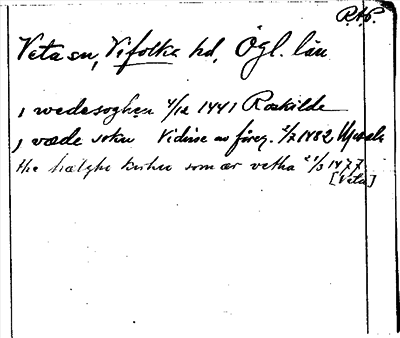 R.A.P.
Veta sn, Vifolka hd, Ögl. län
i wedesoghen 4/12 1441 Roskilde
i væde sokn Vidisse av föreg. 2/2 1482 Upsala
the hælghe kirken som ær vetha 21/3 1477
[Veta]